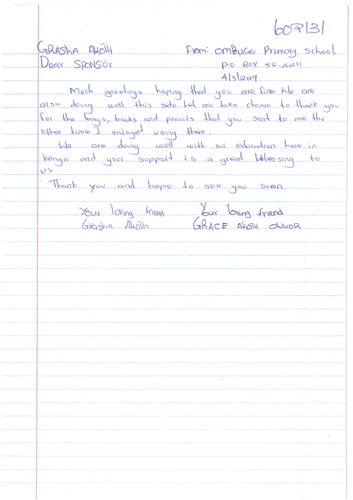 602131
GRASHA AKOTH From: OMBUGO Primary School
Dear SPONSOR P.O BOX 56-40111
4/3/2019
Much greetings hoping that you are fine We are
also doing well this side. Let me take chance to thank you
for the bags, books and pencils that you sent to me the
other time I enjoyed using them.
We are doing well with our education here in
kenya and your support is a great blessing to
us
Thank you and hope to see you soon
Your loving friend Your loving friend
Grasha Akoth GRACE AKOTH OWUOR